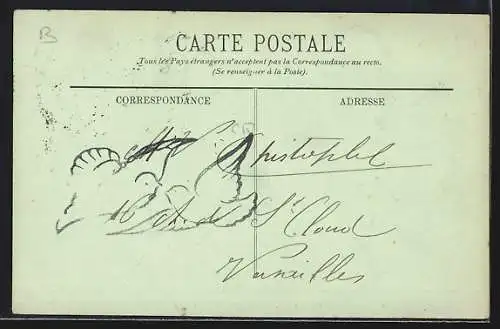 B
CARTE POSTALE
Tous les Pays étrangers n'acceptent pas la Correspondance au recto.
(Se renseigner à la Poste).
CORRESPONDANCE
ADRESSE
Christophe
St Cloud
Versailles